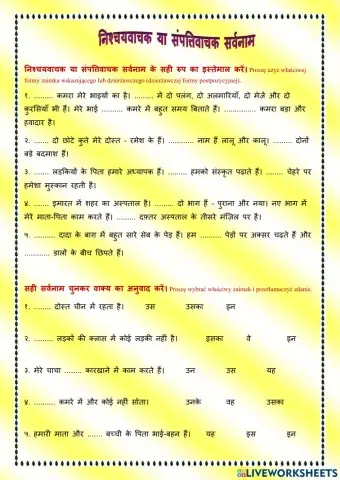 निश्चयवाचक या संपत्तिवाचक सर्वनाम
निश्चयवाचक या संपत्तिवाचक सर्वनाम के सही रुप का इस्तेमाल करें। Proszę użyć właściwej
formy zaimka wskazującego lub dzierżawczego (dzierżawczej formy postpozycyjnej).
१. ......... कमरा मेरे भाइयों का है। ......... में दो पलंग, दो अलमारियाँ, दो मेज़ें और दो
कुरसियाँ भी हैं। मेरे भाई .......... कमरे में बहुत समय बिताते हैं। ............... कमरा बड़ा और
हवादार है।
२. ....... दो छोटे कुत्ते मेरे दोस्त - रमेश के हैं। ............ नाम हैं लालू और कालू। ........ दोनों
बड़े बदमाश हैं।
३. ....... लड़कियों के पिता हमारे अध्यापक हैं। ......... हमको संस्कृत पढ़ाते हैं। ....... चेहरे पर
हमेशा मुस्कान रहती है।
४. ....... इमारत में शहर का अस्पताल है। ......... दो भाग हैं - पुराना और नया। नए भाग में
मेरे माता-पिता काम करते हैं। ......... दफ़्तर अस्पताल के तीसरे मंज़िल पर है।
५. .......... दादा के बाग़ में बहुत सारे सेब के पेड़ हैं। हम .......... पेड़ों पर अक्सर चढ़ते हैं और
............ डालों के बीच छिपते हैं।
सही सर्वनाम चुनकर वाक्य का अनुवाद करें। Proszę wybrać właściwy zaimek i przetłumaczyć zdanie.
१. ........ दोस्त चीन में रहता है। उस उसका इन
२. ......... लड़को की क्लास में कोई लड़की नहीं है। इसका वे इन
३. मेरे चाचा ........ कारखाने में काम करते हैं। उन उस यह
४. .......... कमरे में और कोई नहीं सोता। उनके वह उसका
५. हमारी माता और ....... बच्ची के पिता भाई-बहन हैं। यह इस इन
LIVEWORKSHEETS